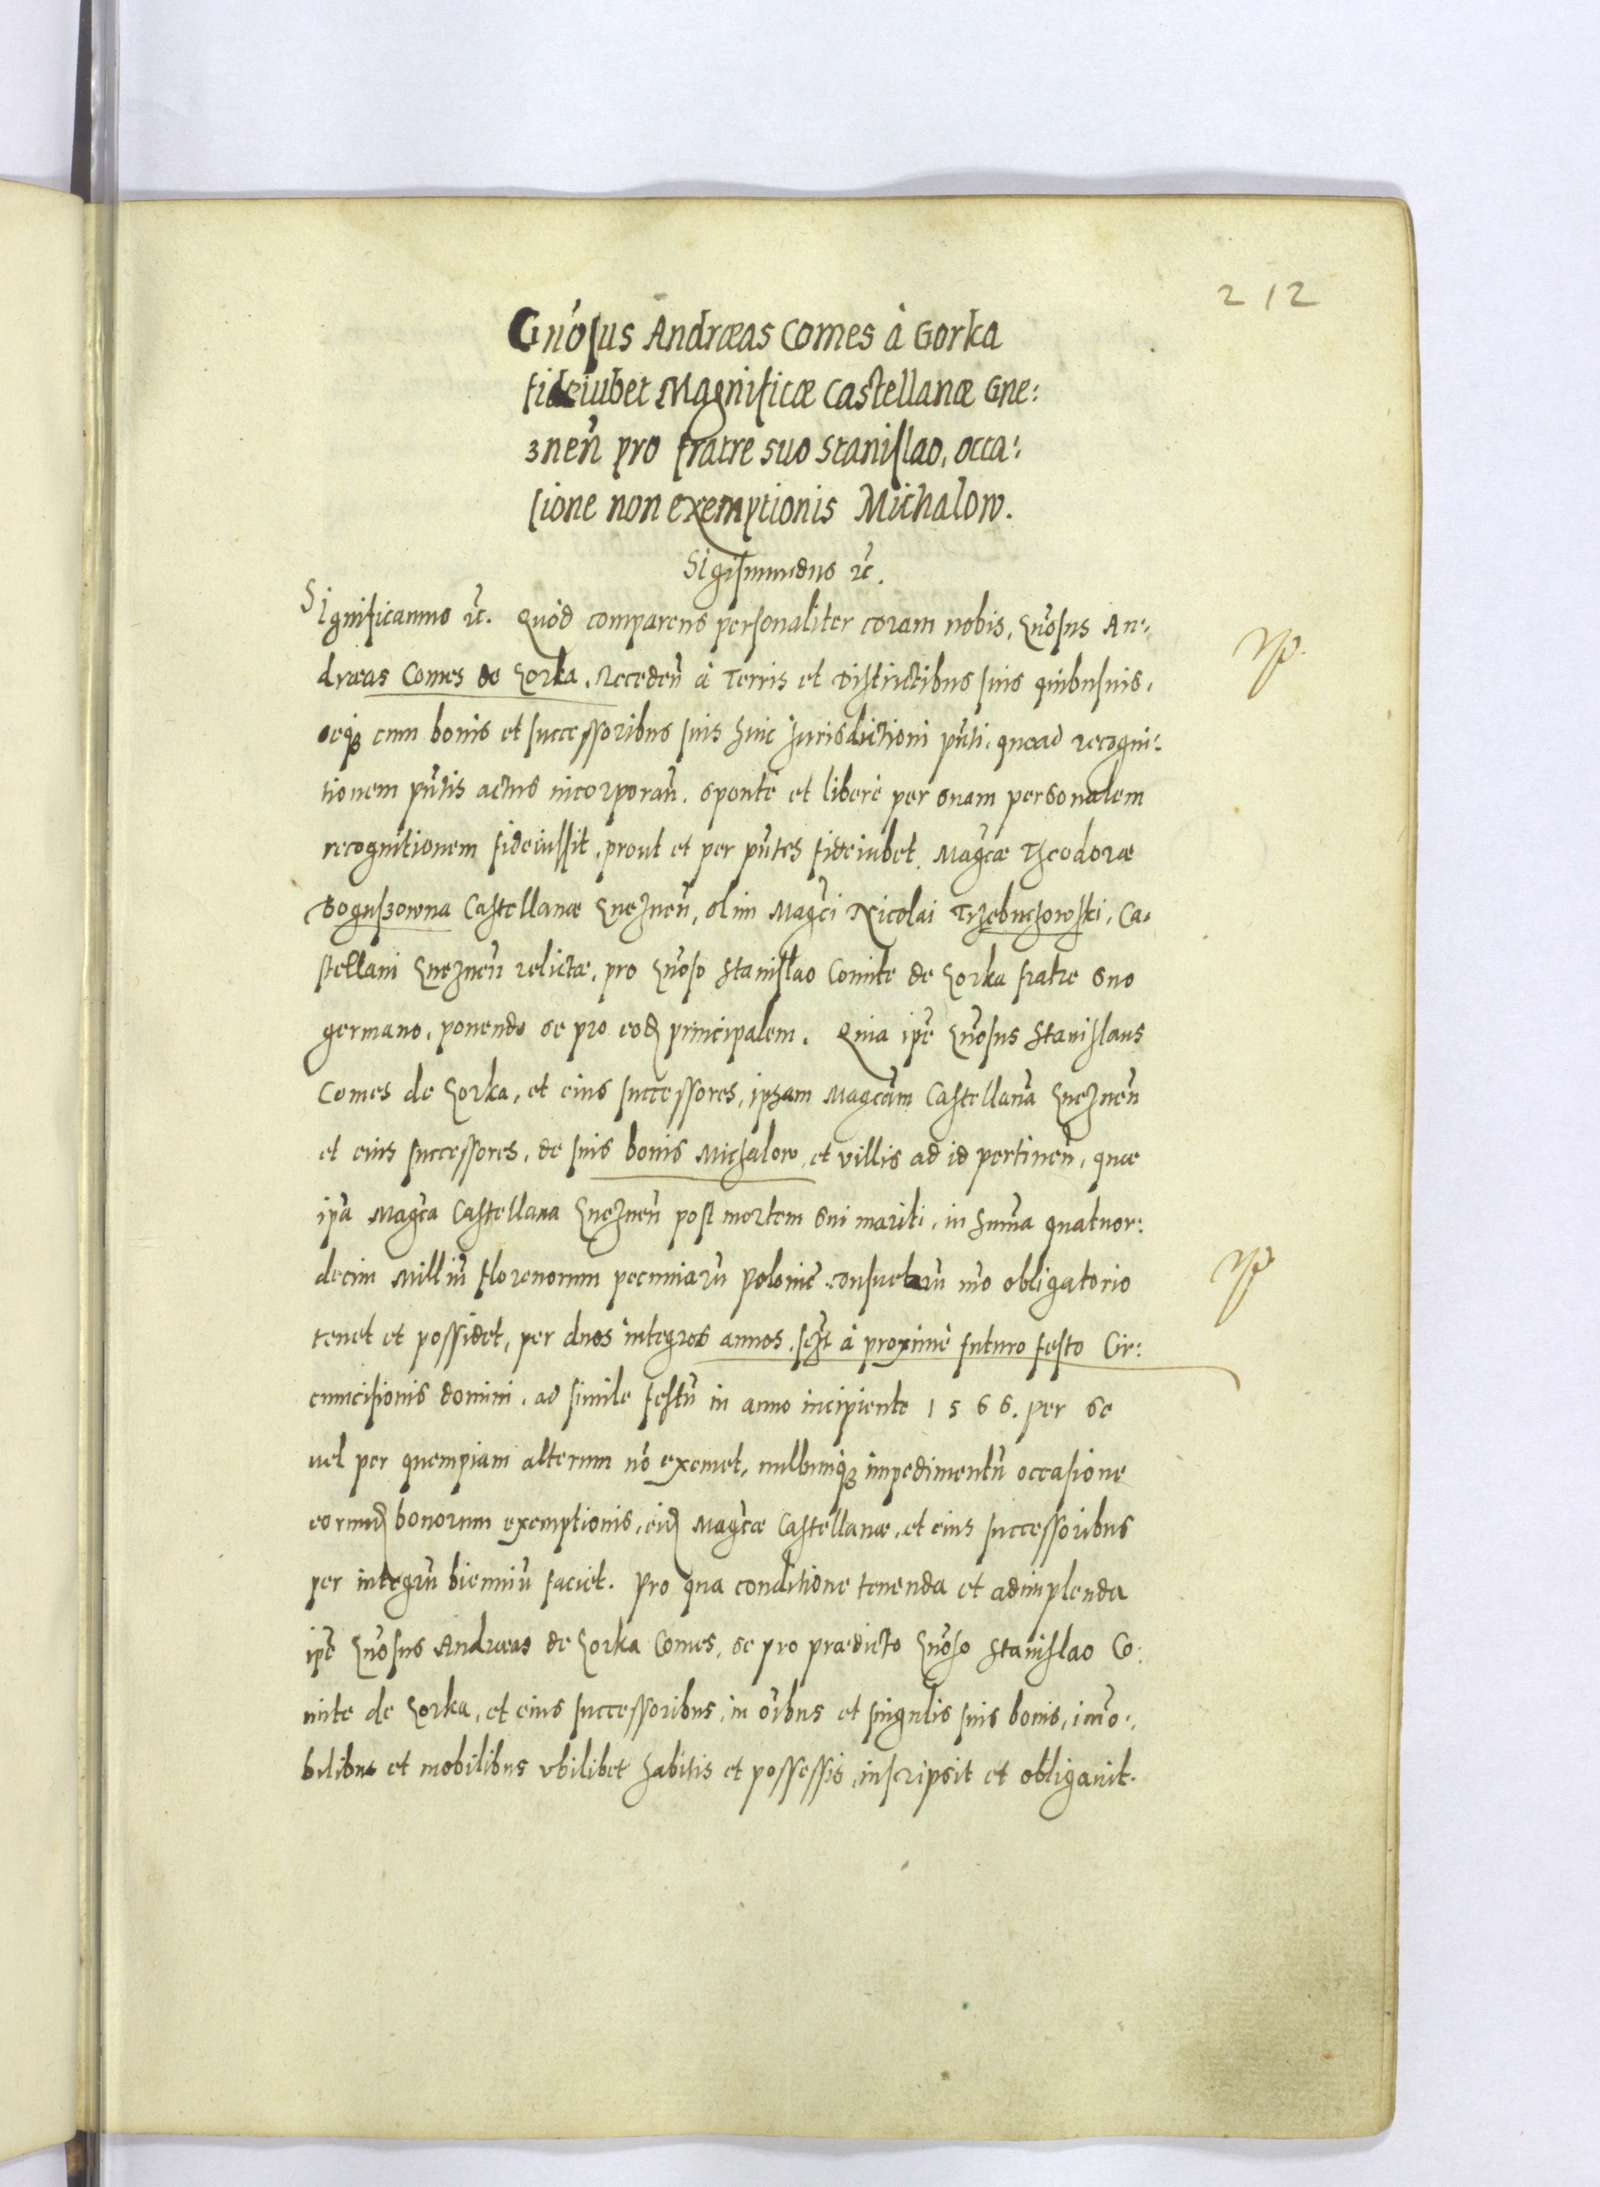 212
Gn̄osus Andræas Comes à Gorka
fideiubet Magnificæ Castellanæ Gne:
znen̄ pro fratre suo Stanislao, occa:
sione non exemptionis Michalow.
Sigismundus ꝛc̄.
Significamus ꝛc̄. Quòd comparens personaliter coram nobis, Gn̄osus An:
dræas Comes de Gorka, Receden̄ à Terris et Districtibus suis quibusuis,
seqꝫ cum bonis et successoribus suis huic Jurisdictioni pn̄ti, quoad recogni:
tionem pn̄tis actus incorporan̄. sponte et liberè per suam personalem
recognitionem fideiussit, prout et per pn̄tes fideiubet Mag̃cæ Theodoræ
Boguszowna Castellanæ Gneznen̄, olim Mag̃ci Nicolai Trzebuchowski, Ca:
stellani Gneznen̄ relictæ, pro Gn̄oso Stanislao Comite de Gorka fratre suo
germano, ponendo se pro eod̄ principalem. Quia ip̄e Gn̄osus Stanislaus
Comes de Gorka, et eius successores, ipsam Mag̃cam Castellanā Gneznen̄
et eius successores, de suis bonis Michalow, et villis ad id pertinen̄, quæ
ip̄a Mag̃ca Castellana Gneznen̄ post mortem sui mariti, in Sum̄a quatuor:
decim Milliū florenorum pecuniarū Polonic̄ consuetarū mō obligatorio
tenet et possidet, per duos integros annos, sc̄ꝫ à proximè futuro festo Cir:
cumcisionis domini, ad simile festū in anno incipiente 1566. per se
uel per quempiam alterum nō exemet, nullumqꝫ impedimentū occasione
eorund̄ bonorum exemptionis, eid̄ Mag̃cæ Castellanæ, et eius successoribus
per integrū bienniū faciet. Pro qua conditione tenenda et adimplenda
ip̄e Gn̄osus Andræas de Gorka Comes, se pro prædicto Gn̄oso Stanislao Co:
mite de Gorka, et eius successoribus, in oībus et singulis suis bonis, im̄o:
bilibus et mobilibus vbilibet habitis et possessis, inscripsit et obligauit.